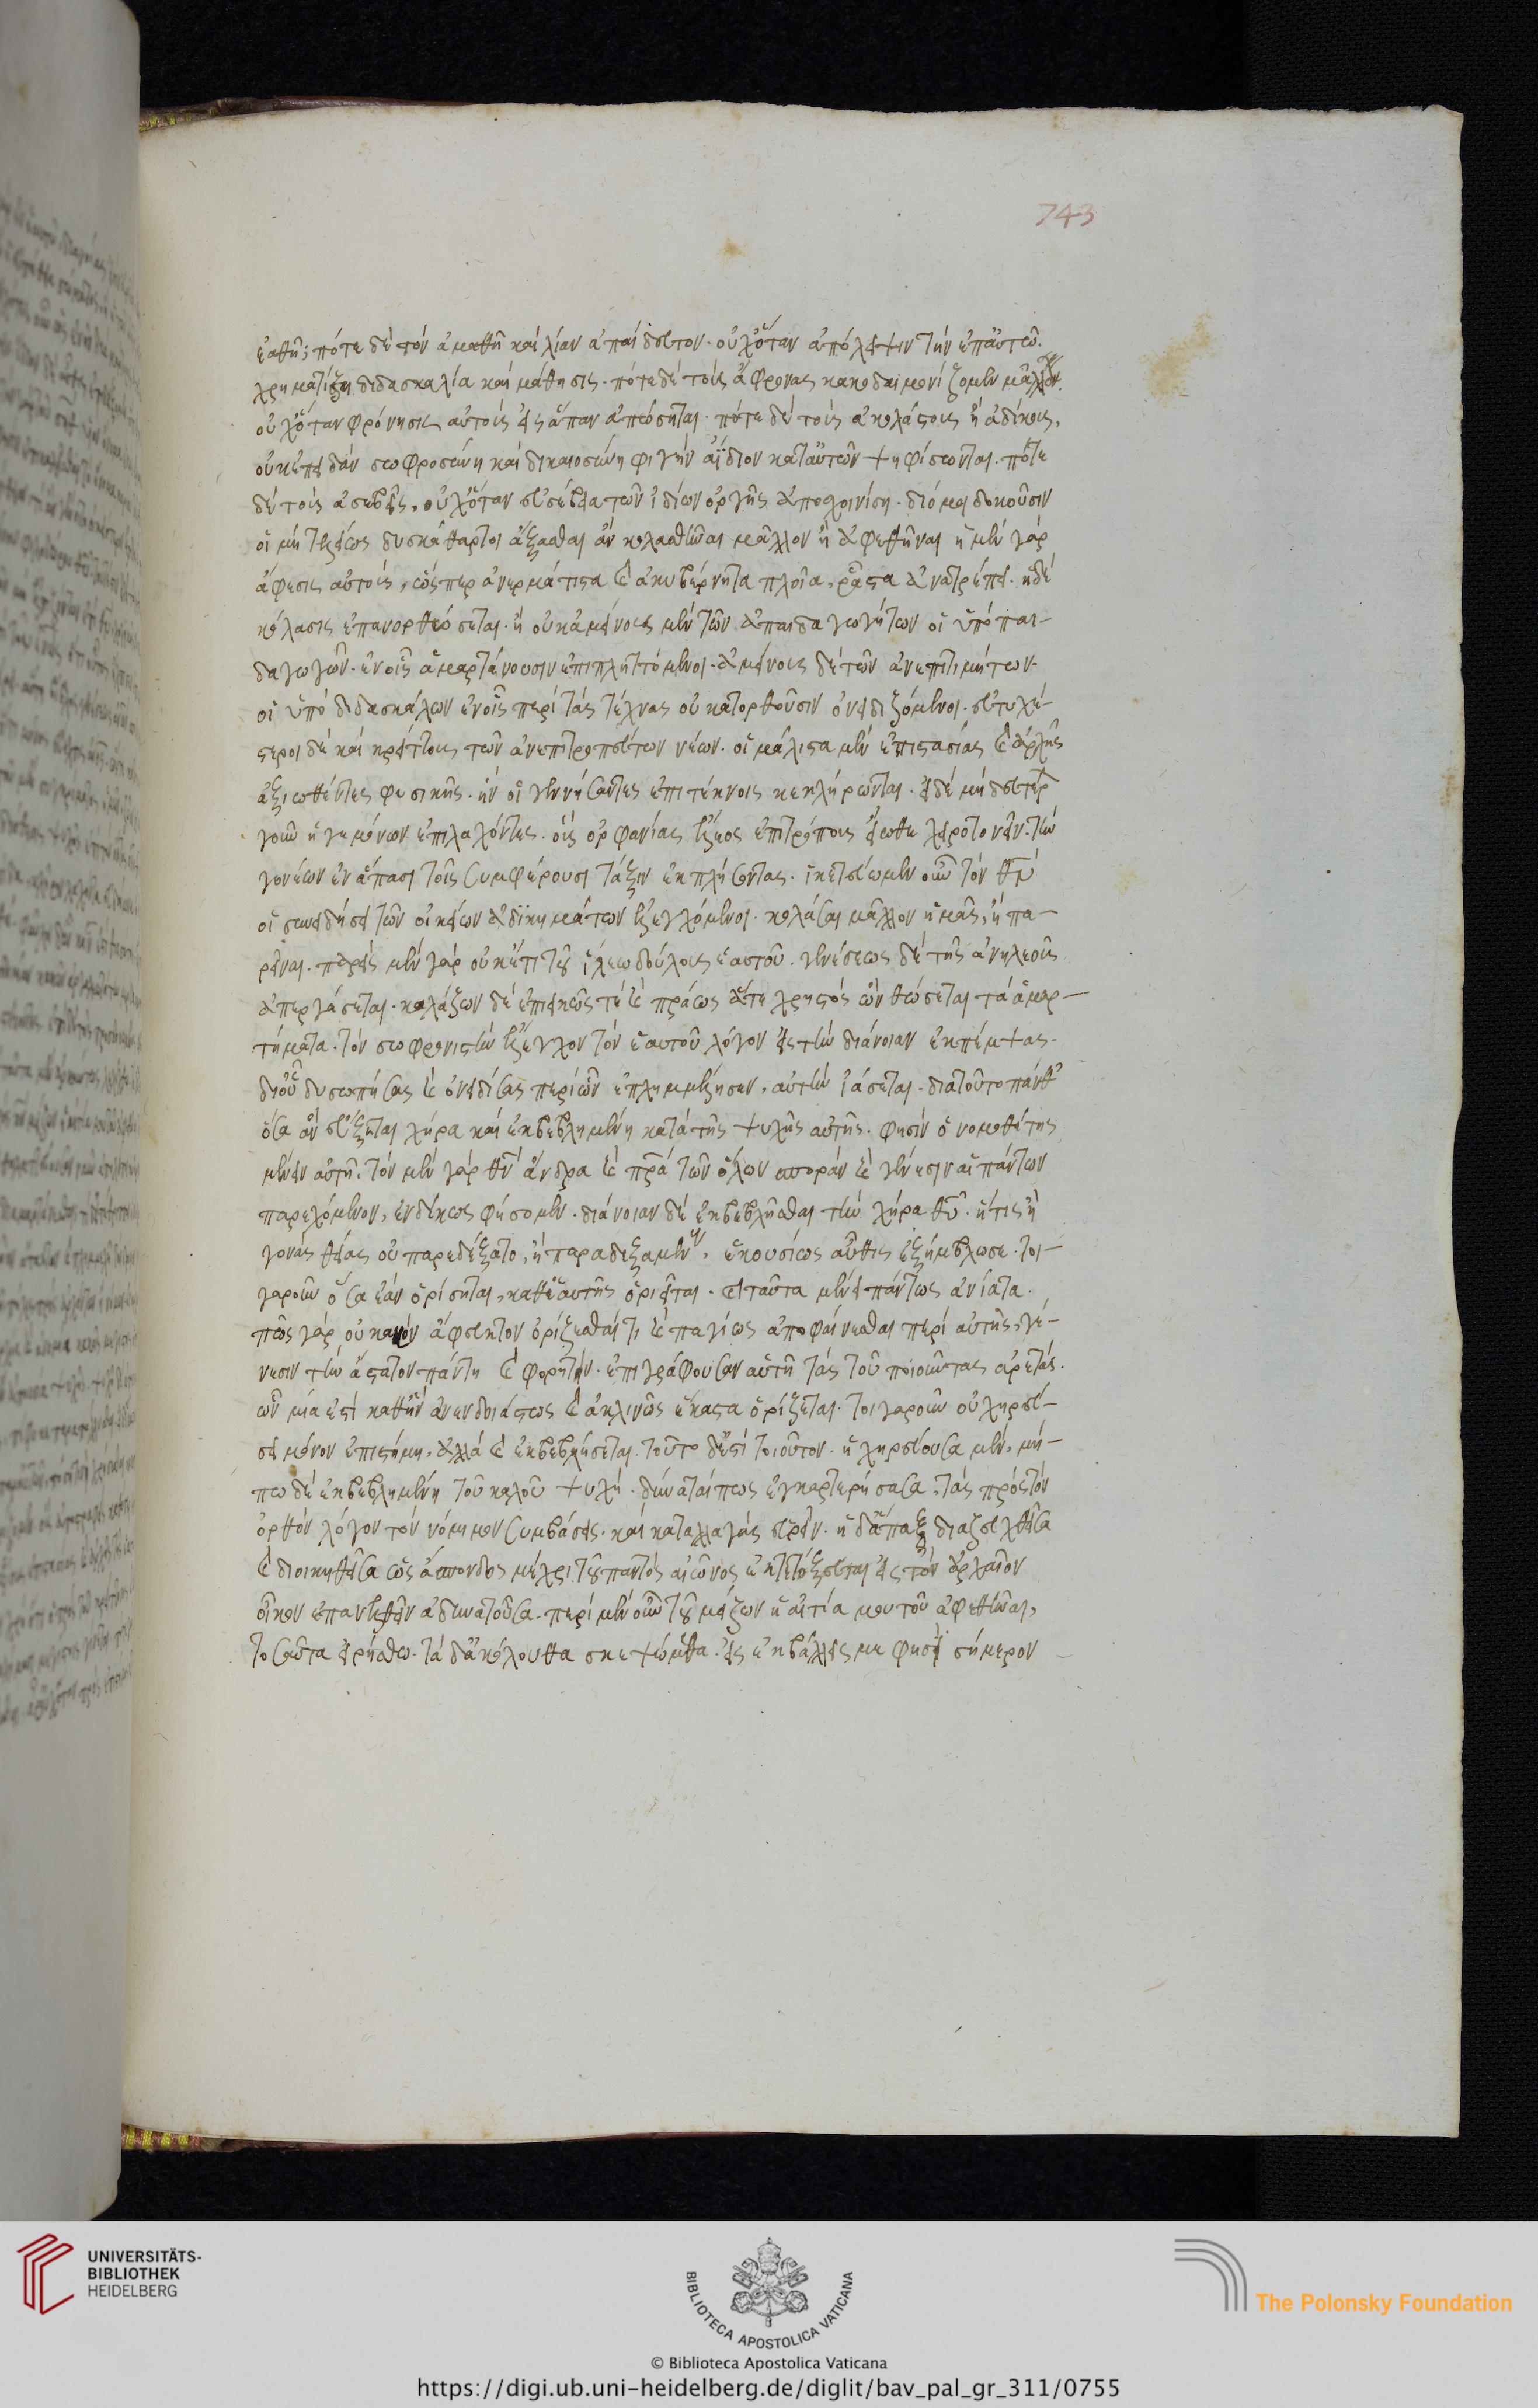 εαθῆ; πότε δὲ τὸν ἀμαθῆ καὶ λίαν ἀπαίδευτον. οὐχ' ὅταν ἀπόλειψιν τὴν ἐπ' αὐτῶ.
χρηματίζη διδασκαλία καὶ μάθησις. πότε δὲ τοὺς ἄφρονας κακοδαιμονίζομεν μᾶλλον.
οὐχ' ὅταν φρόνησις αὐτοὺς εἰς ἅπαν ἀπεόσηται. πότε δὲ τοὺς ἀκολάστους ἢ ἀδίκους.
οὐκ ἐπειδὰν σωφροσύνη καὶ δικαιοσύνη φυγὴν ἀΐδιον κατ' αὐτῶν ψηφίσωνται. πότε
δὲ τοὺς ἀσεβεῖς, οὐχ' ὅταν εὐσέβεια τῶν ἰδίων ὀργῆς ἀποσχοινίση. διό μοι δοκοῦσιν
οἱ μὴ τελείως δυσκάθαρτοι εὔξασθαι ἂν κολασθῆναι μᾶλλον ἢ ἀφεθῆναι ἡ μὲν γὰρ
ἄφεσις αὐτοὺς, ὥσπερ ἀνερμάτιστα καὶ ἀκυβέρνητα πλοῖα, ῥᾶστα ἀνατρέπει. ἡ δὲ
κόλασις ἐπανορθώσεται. ἢ οὐκ ἀμείνους μὲν τῶν ἀπαιδαγωγήτων οἱ ὑπὸ παι-
δαγωγῶν. ἐν οἷς ἁμαρτάνουσιν ἐπιπληττόμενοι. ἀμείνους δὲ τῶν ἀνεπιτιμήτων.
οἱ ὑπὸ διδασκάλων ἐν οἷς περὶ τὰς τέχνας οὐ κατορθοῦσιν ὀνειδιζόμενοι. εὐτυχέ-
στεροι δὲ καὶ κρείττους τῶν ἀνεπιτροπεύτων νέων. οἱ μάλιστα μὲν ἐπιστασίας καὶ ἀρχῆς
ἀξιωθέντες φυσικῆς. ἣν οἱ γεννήσαντες ἐπὶ τέκνοις κεκλήρωνται. εἰ δὲ μὴ δευτέρ
γοῦν ἡγεμόνων ἐπιλαχόντες. οὓς ὀρφανίας ἔλεος ἐπιτρόποις εἴωθε χειροτονεῖν. τὴν
γονέων ἐν ἅπασι τοῖς συμφέρουσι τάξιν ἐκπλήσοντας. ἱκετεύωμεν οὖν τὸν θν
οἱ συνειδήσει τῶν οἰκείων ἀδικημάτων ἐλεγχόμενοι. κολάσαι μᾶλλον ἡμᾶς, ἢ πα-
ρεῖναι. παρεὶς μὲν γὰρ οὐκέτι τοῦ ἵλεω δούλους ἑαυτοῦ. γενέσεως δὲ τῆς ἀνηλεοῦς
ἀπεργάσεται. κολάζων δὲ ἐπιεικῶς τὲ καὶ πράως ἅτε χρηστὸς ὢν θώσεται τὰ ἁμαρ-
τήματα. τὸν σωφρονιστὴν ἔλεγχον τὸν ἑαυτοῦ λόγον εἰς τὴν διάνοιαν ἐκπέμψας.
δι' οὗ δυσωπήσας καὶ ὀνειδίσας περὶ ὧν ἐπλημμέλησεν, αὐτὴν ἰάσεται. διατοῦτο πάνθ'
ὅσα ἂν εὔξεται χήρα καὶ ἐκβεβλημένη κατὰ τῆς ψυχῆς αὐτῆς. φησὶν ὁ νομοθέτης
μένειν αὐτῆ. τὸν μὲν γὰρ θν ἄνδρα καὶ πρα τῶν ὅλων σποράν καὶ γένεσιν ἁπάντων
παρεχόμενον, ἐνδίκως φήσομεν. διάνοιαν δὲ ἐκβεβλῆσθαι τὴν χήραν θυ. ἥτις ἢ
γονὰς θείας οὐ παρεδέξατο, ἢ παραδεξαμένη, ἑκουσίως αὖθις ἐξήμβλωσε. τοι-
γαροῦν ὅσα ἐὰν ὁρίσηται, καθ' ἑαυτῆς ὁριεῖται. καὶ ταῦτα μένει πάντως ἀνίατα.
πῶς γὰρ οὐ κανὸν ἄφευκτον ὁρίζεσθαί τι καὶ παγίως ἀποφαίνεσθαι περὶ αὐτῆς, γέ-
νεσιν τὴν ἄστατον πάντη καὶ φορητήν. ἐπιγράφουσαν αὑτῆ τὰς τοῦ ποιοῦντος ἀρετάς.
ὧν μία ἐστὶ καθ' ἣν ἀνενδοιάστως καὶ ἀκλινῶς ἕκαστα ὁρίζεται. τοιγαροῦν οὐ χηρεύ-
σει μόνον ἐπιστήμη, ἀλλὰ καὶ ἐκβεβλήσεται. τοῦτο δ' ἐστὶ τοιοῦτον. ἡ χηρεύουσα μὲν, μή-
πω δὲ ἐκβεβλημένη τοῦ καλοῦ ψυχή. δύναταί πως ἐγκαρτερήσασα. τὰς πρὸς τὸν
ὀρθὸν λόγον τὸν νόμιμον συμβάσεις. καὶ καταλλαγὰς εὑρεῖν. ἡ δ' ἅπαξ διαζευχθεῖσα
καὶ διοικηθεῖσα ὡς ἄσπονδος μέχρι τοῦ παντὸς αἰῶνος ἐκτετόξευται εἰς τὸν ἀρχαῖον
οἶκον ἐπανελθεῖν ἀδυνατοῦσα. περὶ μὲν οὖν τοῦ μείζων ἡ αἰτία μου τοῦ ἀφεθῆναι,
τοσαῦτα εἰρήσθω. τὰ δ' ἀκόλουθα σκεψώμεθα. εἰς ἐκβάλλεις με φησὶ σήμερον
743
UNIVERSITÄTS-
BIBLIOTHEK
HEIDELBERG
BIBLIOTECA APOSTOLICA VATICANA
© Biblioteca Apostolica Vaticana
The Polonsky Foundation
https://digi.ub.uni-heidelberg.de/diglit/bav_pal_gr_311/0755